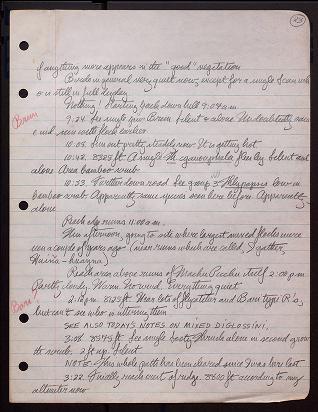 23
if anything more appears in the "good" vegetation
Birds in general very quiet now, except for a single
is still in full
Nothing! Starting back down hill 9:04 a.m.
9:24 See single
Brown
silent & alone Undoubtedly same
seen with flock earlier
10:05 Sun out pretty steadily now It is getting hot
10:42 8525 ft A single
flies by silent and
alone Area bamboo scrub
10:53 Further down road See group 3 low in
bamboo scrub Apparently same ones seen here before Apparently
alone
Reach edge ruins 11:00 a.m.
This afternoon, going to site where largest mixed flocks were
seen a couple of years ago (near ruins which are called, I gather,
Reach area above ruins of Machu Picchu itself 2:00 p.m.
Partly cloudy. Warm. No wind. Everything quiet
Bare?
2:12 pm 8125 ft Hear lots of Flycatcher and Bare type R's,
but can't see who is uttering them
SEE ALSO TODAYS NOTES ON MIXED DIGLOSSINI.
3:08 8345 ft See single
alone in second growth
scrub 2 ft up. Silent
NOTE: This whole path has been cleared since I was here last
3:22 Finally reach crest of ridge. 8600 ft according to my
altimeter now